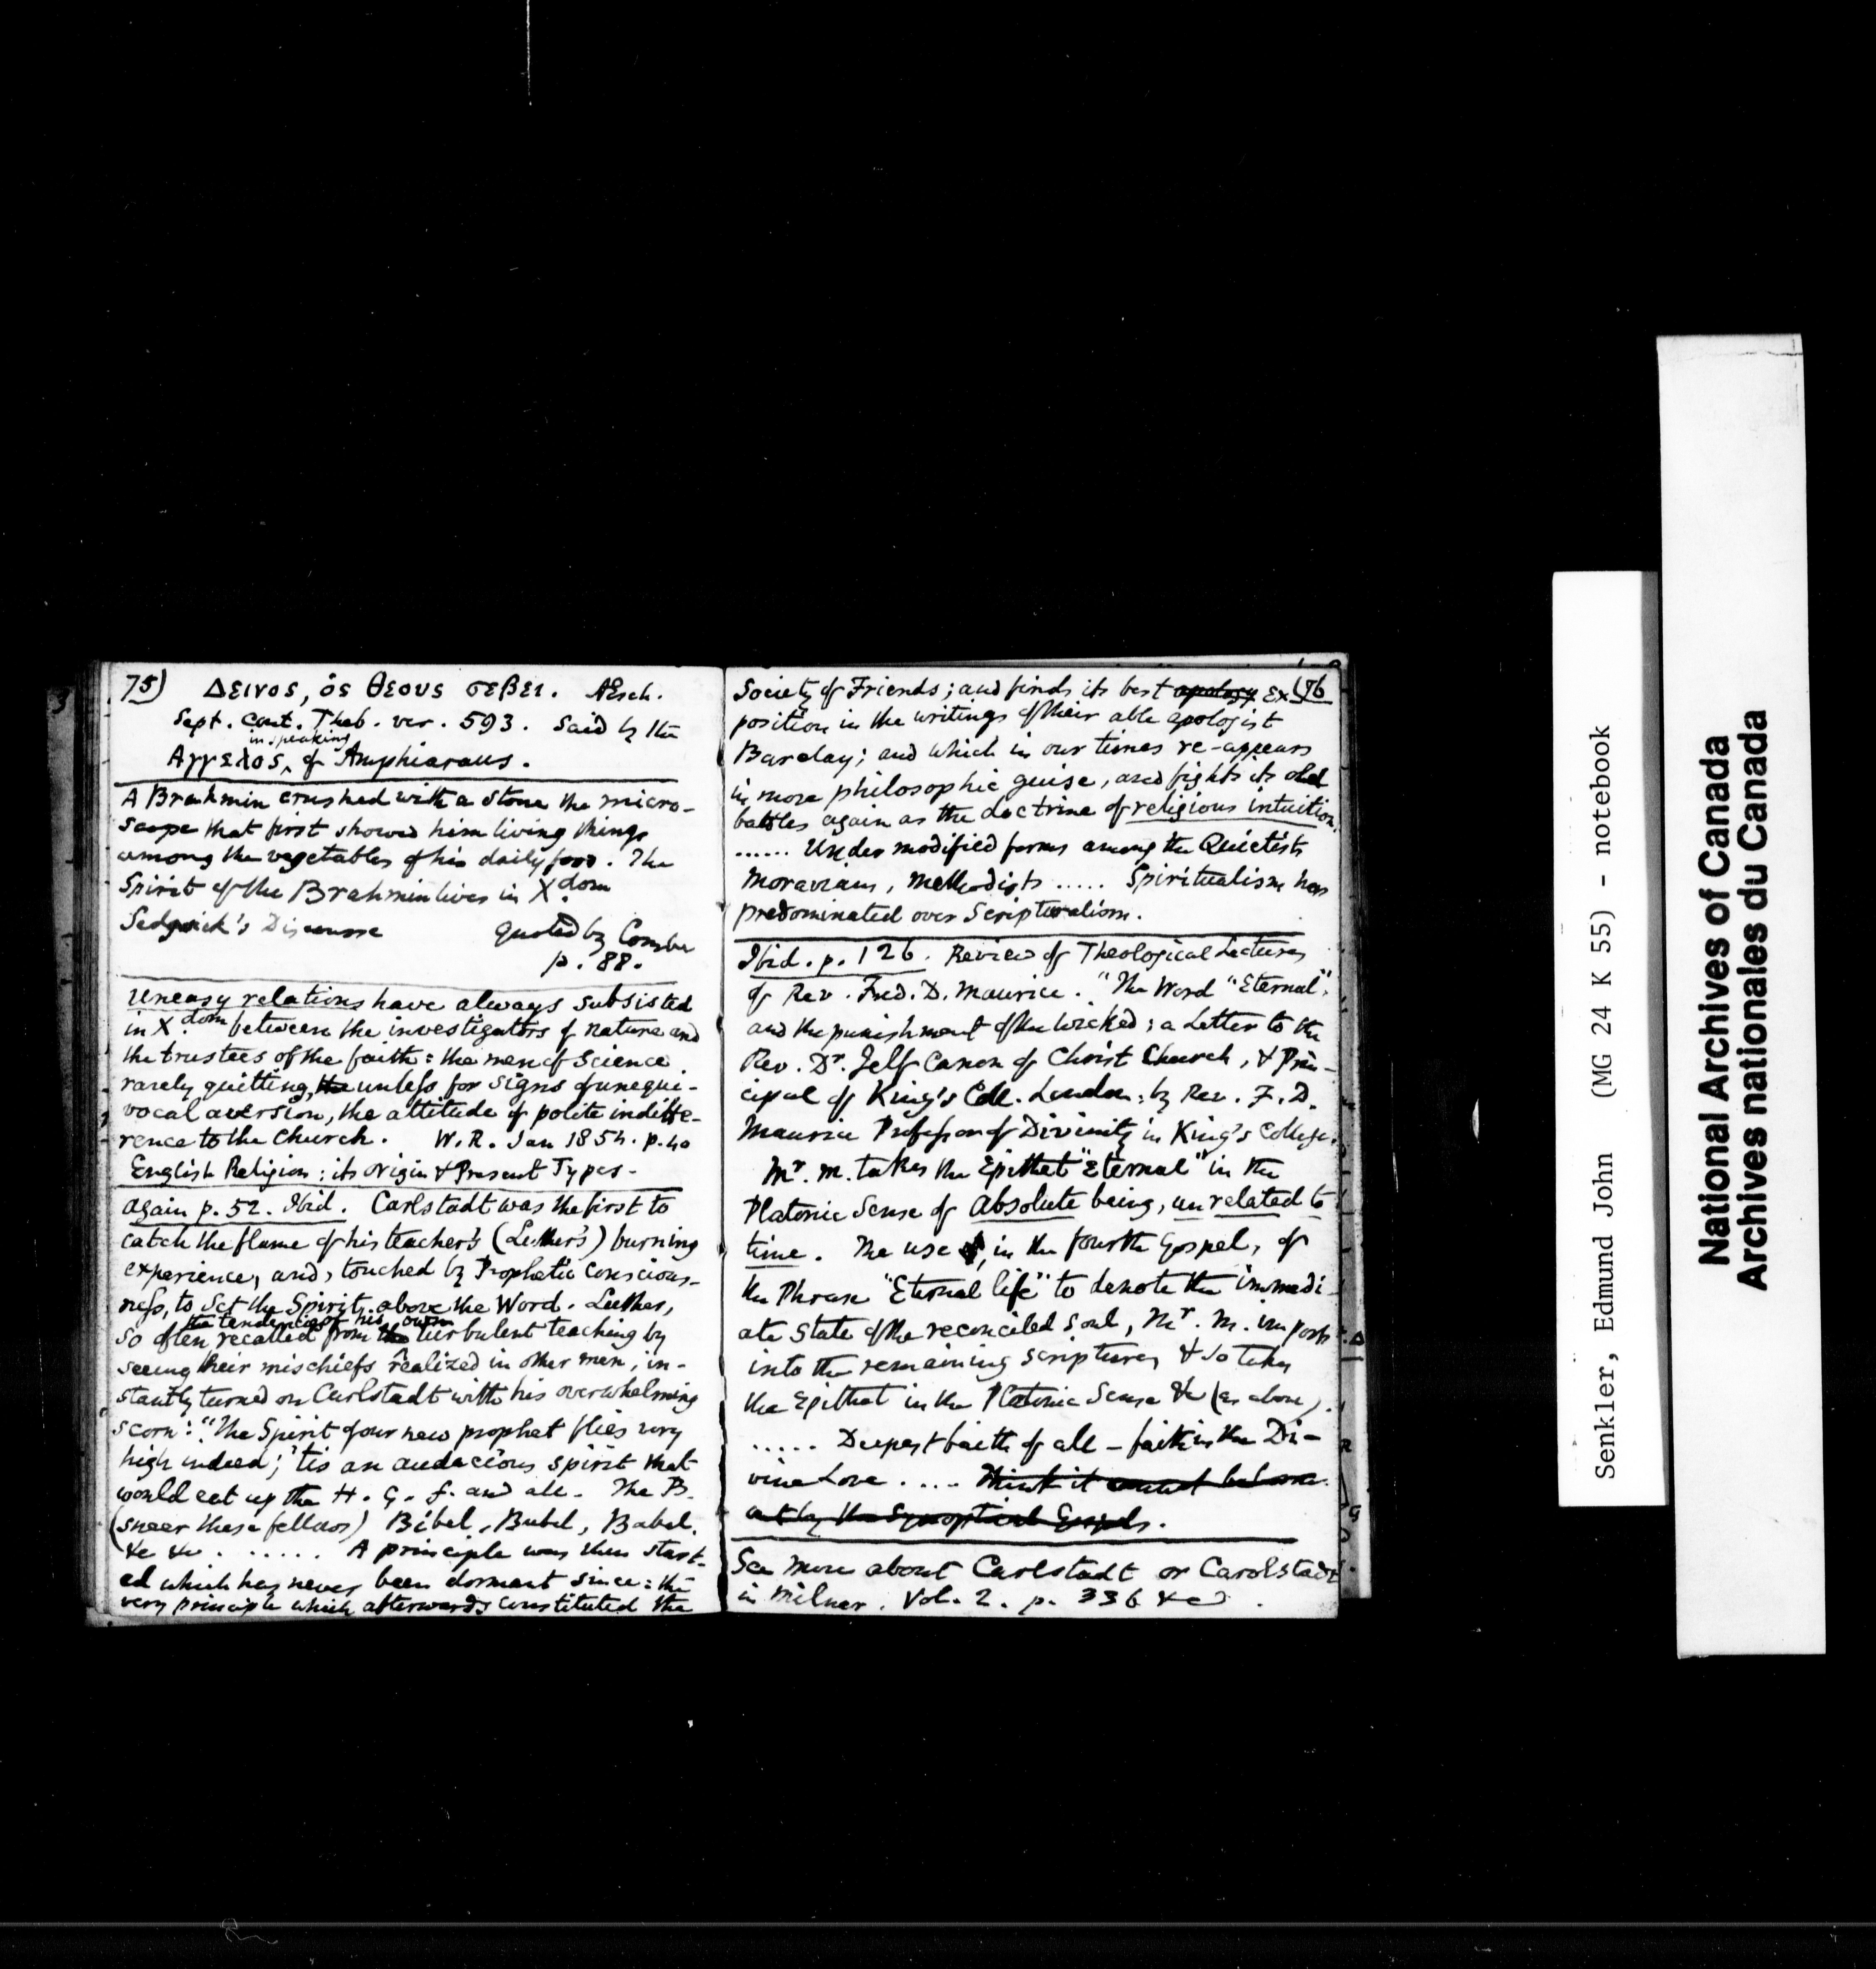 75)
Δεινος, ὁς θεους σεβει. Æsch.
Sept. cont. Theb. ver. 593. Said by the
in speaking
Αγγελος, of Amphiaraus.
A Brahmin crushed with a stone the micro-
scope that first showed him living things
among the vegetables of his daily food. The
Spirit of the Brahmin lives in X.dom
Sedgwick's Discourse quoted by Combe
p. 88.
Uneasy relations have always subsisted
in X.dom between the investigators of nature and
the trustees of the faith: the men of science
rarely quitting, the unless for signs of unequi-
vocal aversion, the attitude of polite indiffe-
rence to the Church. W.R. Jan 1854. p. 40
English Religion: its origin & Present Types-
Again p. 52. Ibid. Carlstadt was the first to
catch the flame of his teacher's (Luther's) burning
experience, and, touched by Prophetic conscious-
ness, to set the Spirit above the Word. Luther,
the tendencies of his own
so often recalled from the turbulent teaching by
seeing their mischiefs realized in other men, in-
stantly turned on Carlstadt with his overwhelming
scorn: "The Spirit of our new prophet flies very
high indeed; 'tis an audacious spirit that
would eat up the H. G. f. and all. The B.
(sneer these fellows) Bibel, Bubel, Babel.
&c &c. ..... A principle was then start-
ed which has never been dormant since: the
very principle which afterwards constituted the
76
Society of Friends; and finds its best apology ex-
position in the writings of their able apologist
Barclay; and which in our times re-appears
in more philosophic guise, and fights its old
battles again as the doctrine of religious intuition.
...... Under modified forms among the Quietists
Moravians, Methodists ..... Spiritualism has
predominated over Scripturalism.
Ibid. p. 126. Review of Theological Lectures
of Rev. Fred. D. Maurice. "The Word "Eternal",
and the punishment of the wicked: a Letter to the
Rev. Dr. Jelf Canon of Christ Church, & Prin-
cipal of King's Coll. London: by Rev. F. D.
Maurice Professor of Divinity in King's College.
Mr. M. takes the Epithet "Eternal" in the
Platonic Sense of Absolute being, unrelated to
time. The use, in the fourth Gospel, of
the Phrase "Eternal life" to denote the immedi-
ate state of the reconciled soul, Mr. M. imports
into the remaining scriptures & so takes
the Epithet in the Platonic Sense &c (as above).
..... Deepest faith of all - faith in the Di-
vine Love ..... Think it cannot be borne
out by the Synoptical Gospels.
See more about Carlstadt or Carolstadt
in Milner. Vol. 2. p. 336 &c.
Senkler, Edmund John (MG 24 K 55) - notebook
National Archives of Canada
Archives nationales du Canada